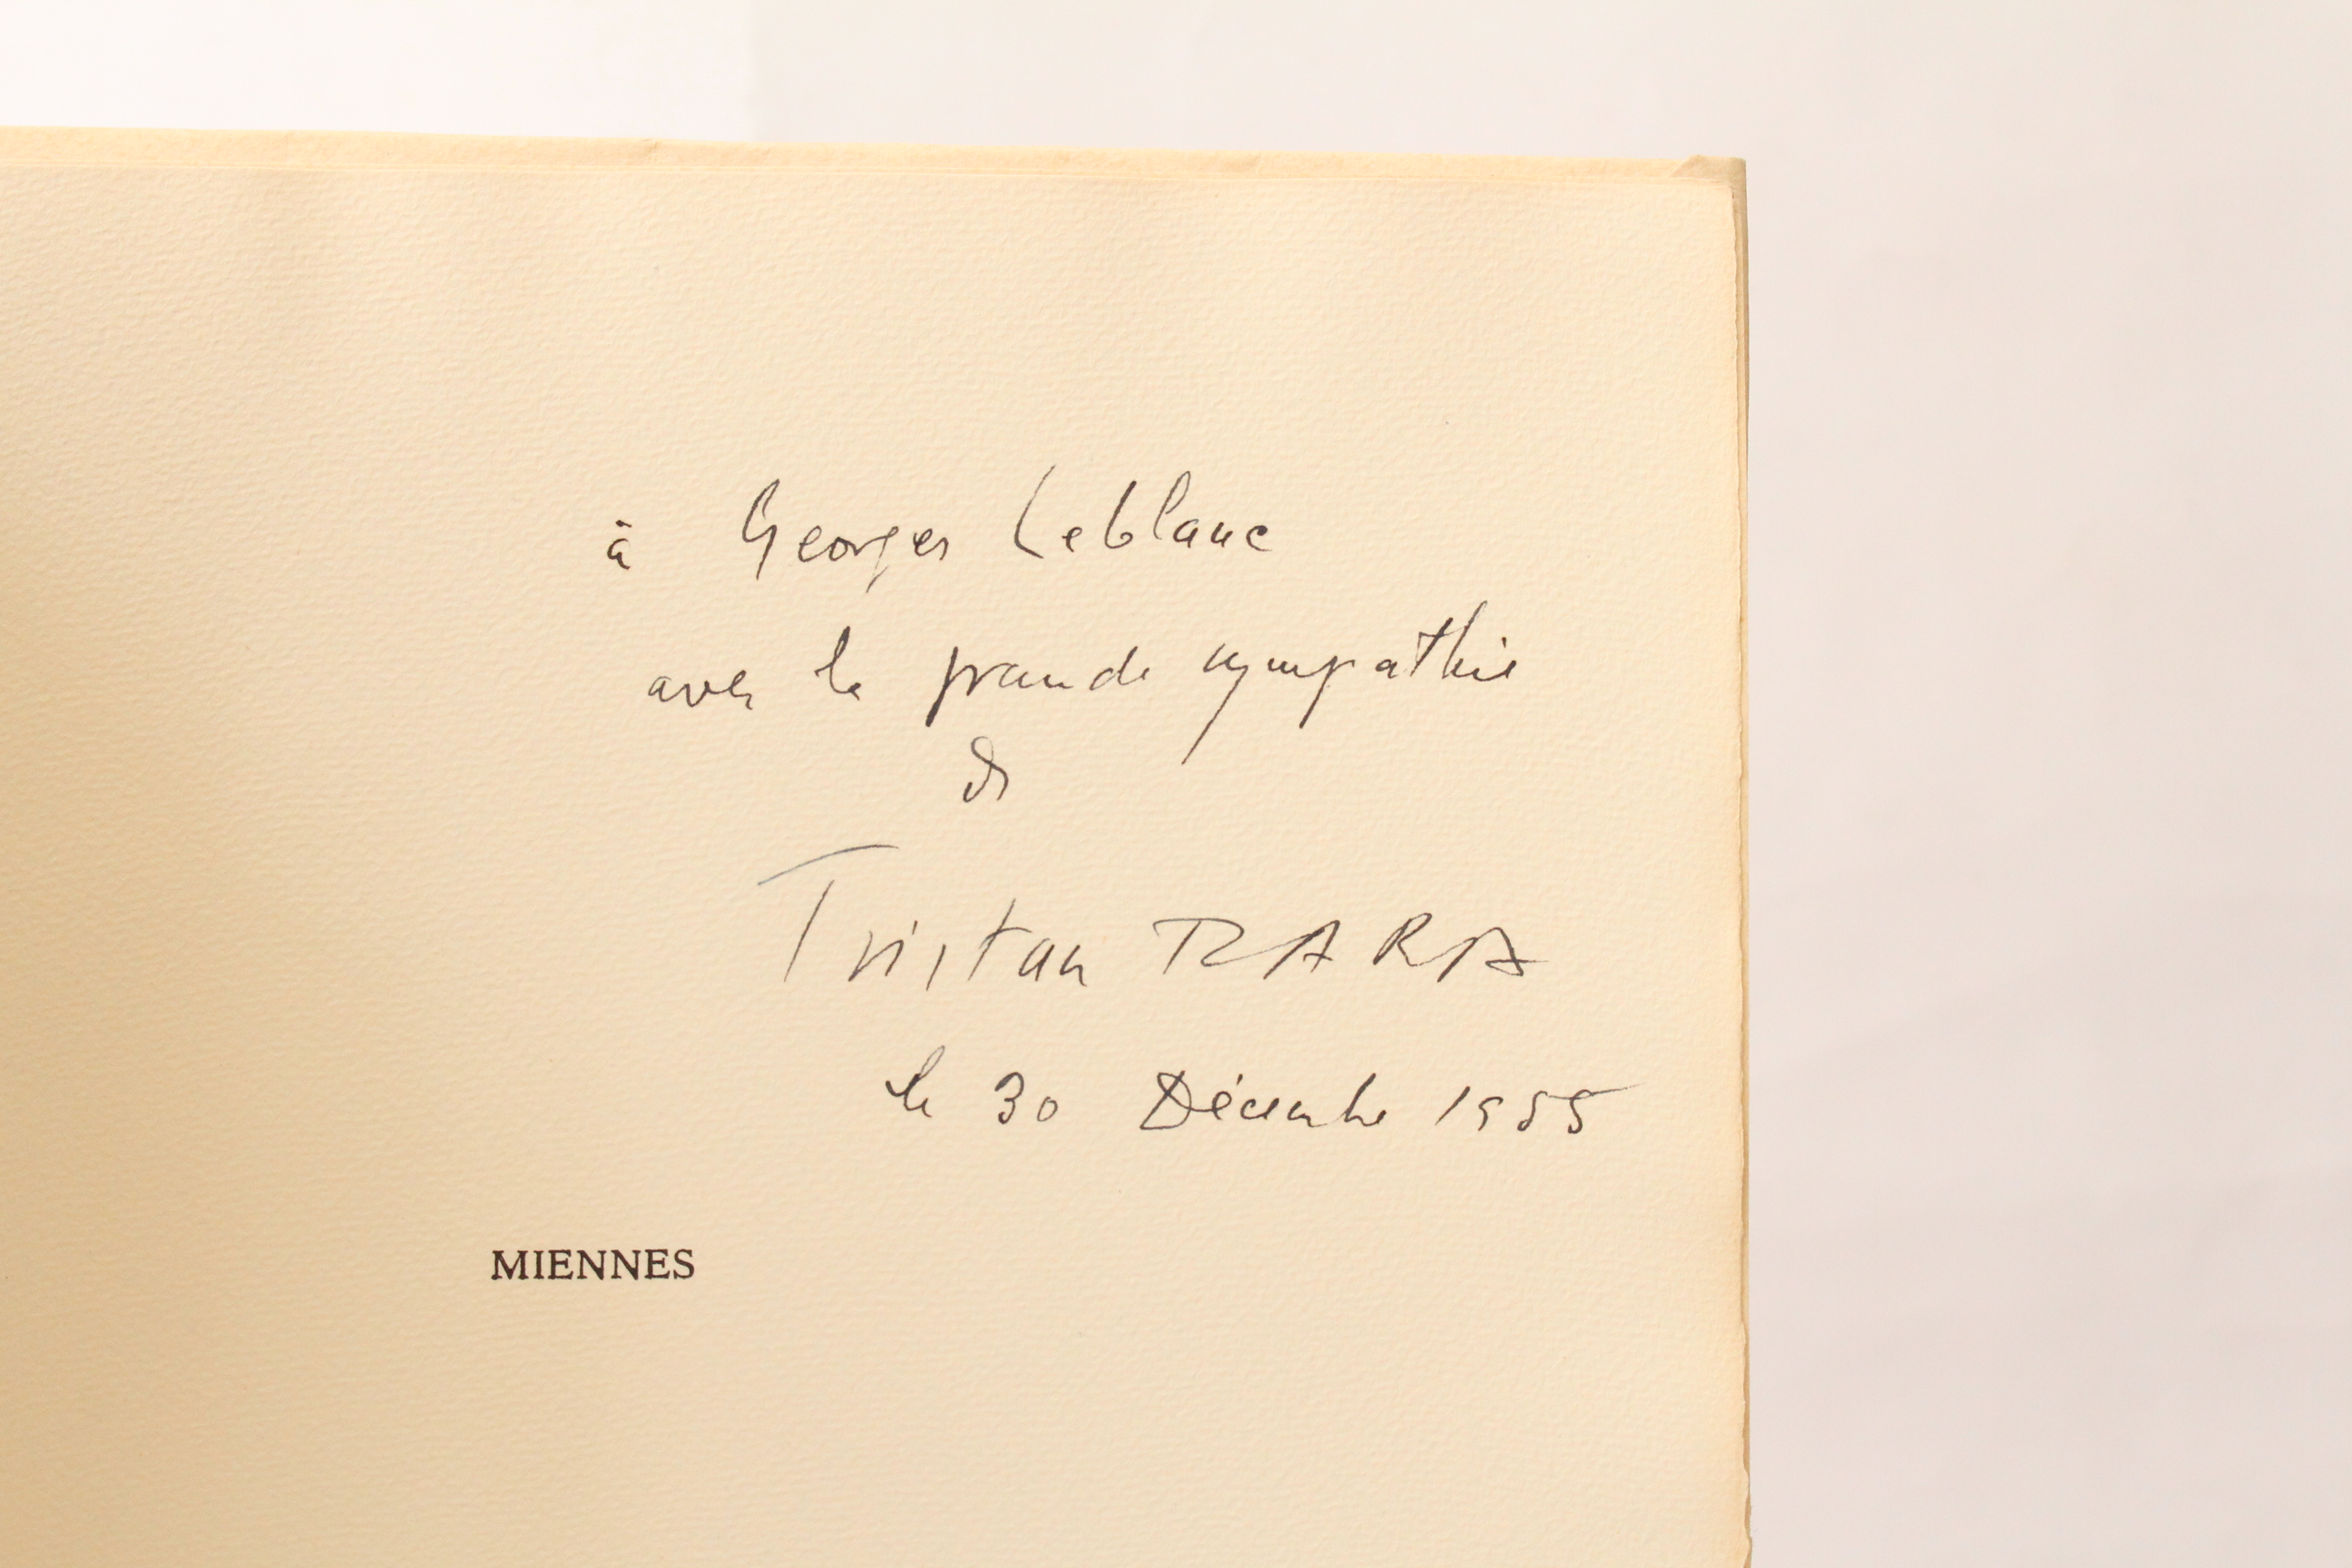 à Georges Leblanc
avec la grande sympathie
de
Tristan TZARA
le 30 Décembre 1955
MIENNES